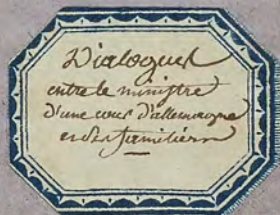 Dialogues
entre le ministre
d'une cour d'allemagne
et des familiers